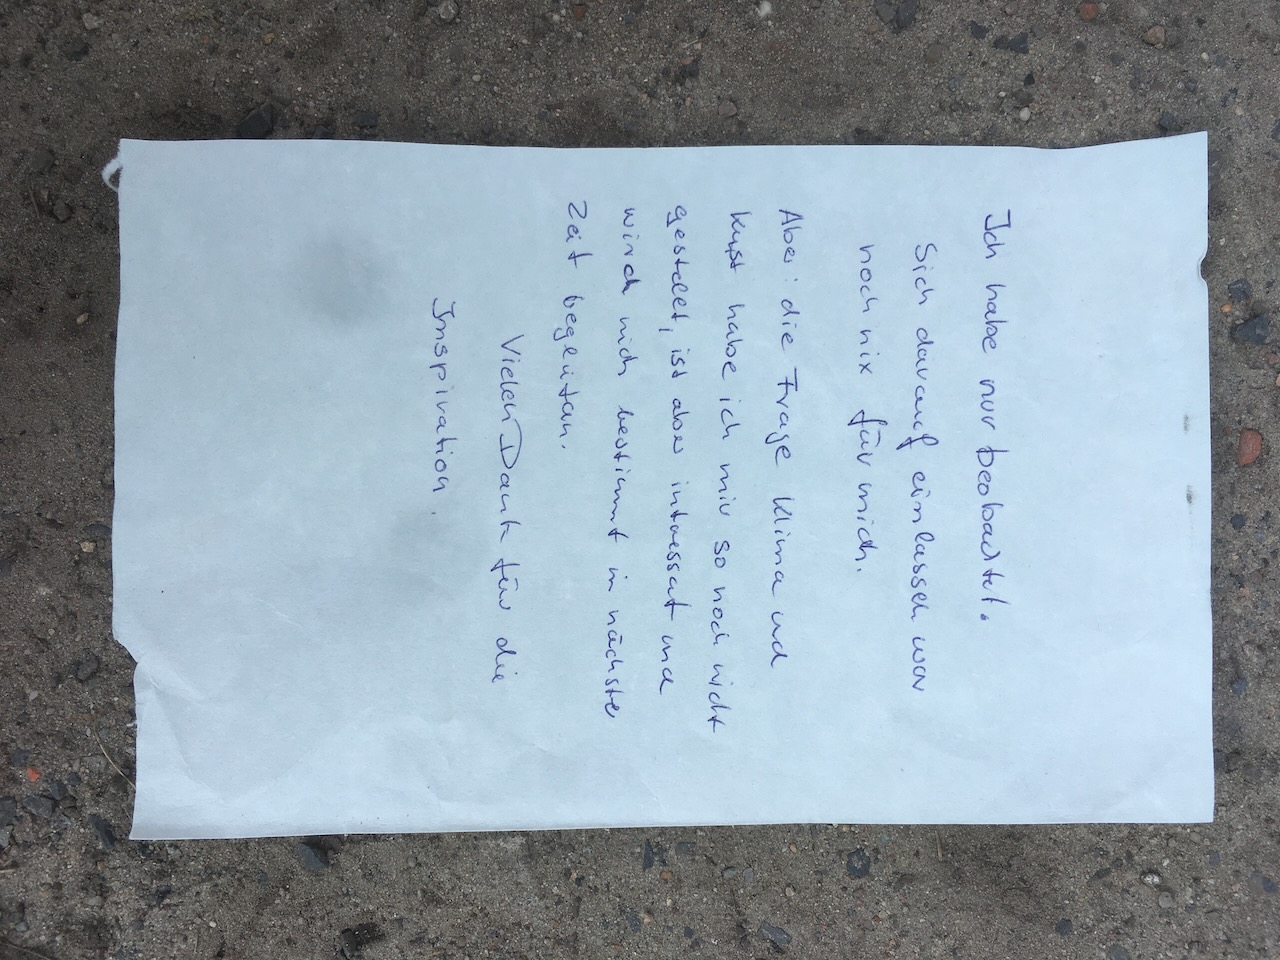 Ich habe nur beobachtet.
Sich darauf einlassen war
noch nix für mich.
Aber: die Frage Klima und
Kunst habe ich mir so noch nicht
gestellt, ist aber interessant und
wird mich bestimmt in nächster
Zeit begleiten.
Vielen Dank für die
Inspiration.